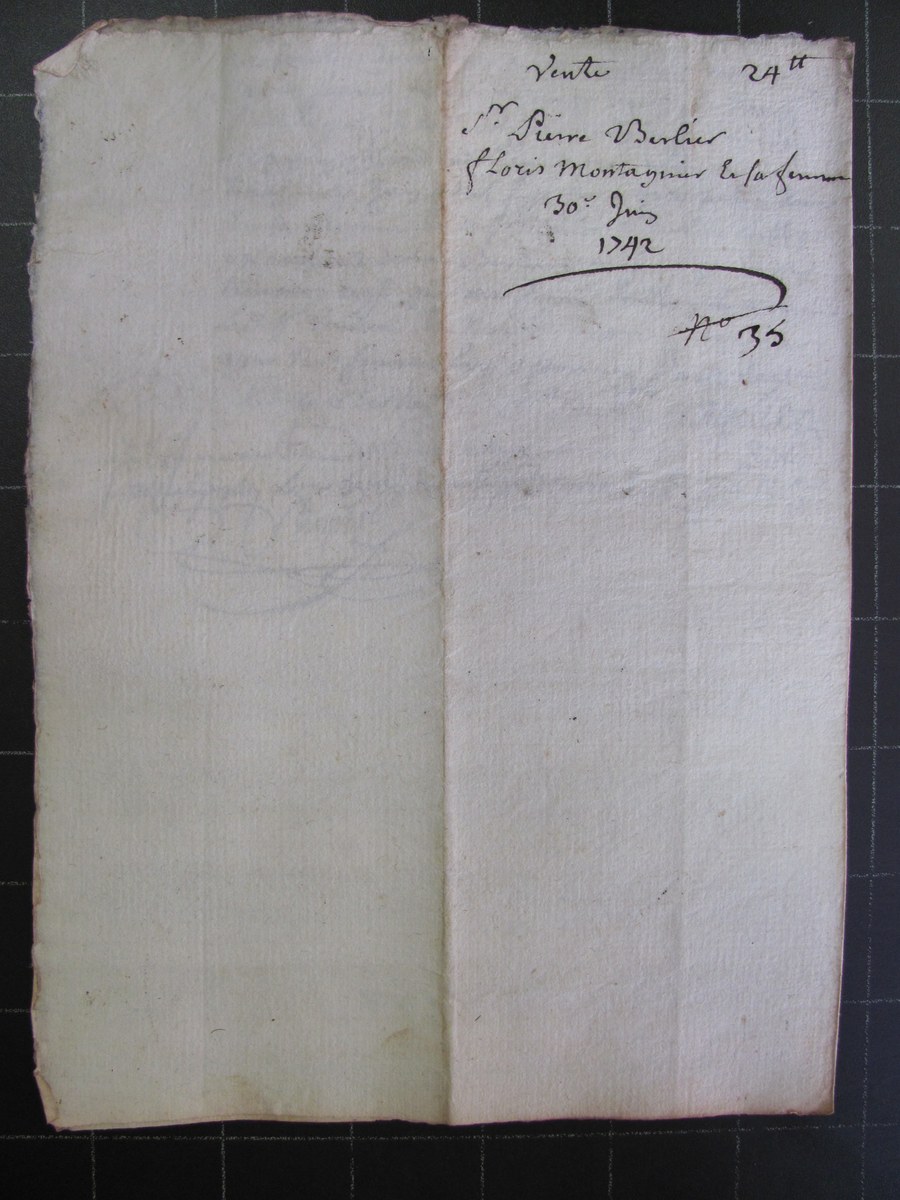 Vente 24tt
Sr Pierre Berlier
fLoris Montagnier Et sa femme
30e Juin
1742
No 35